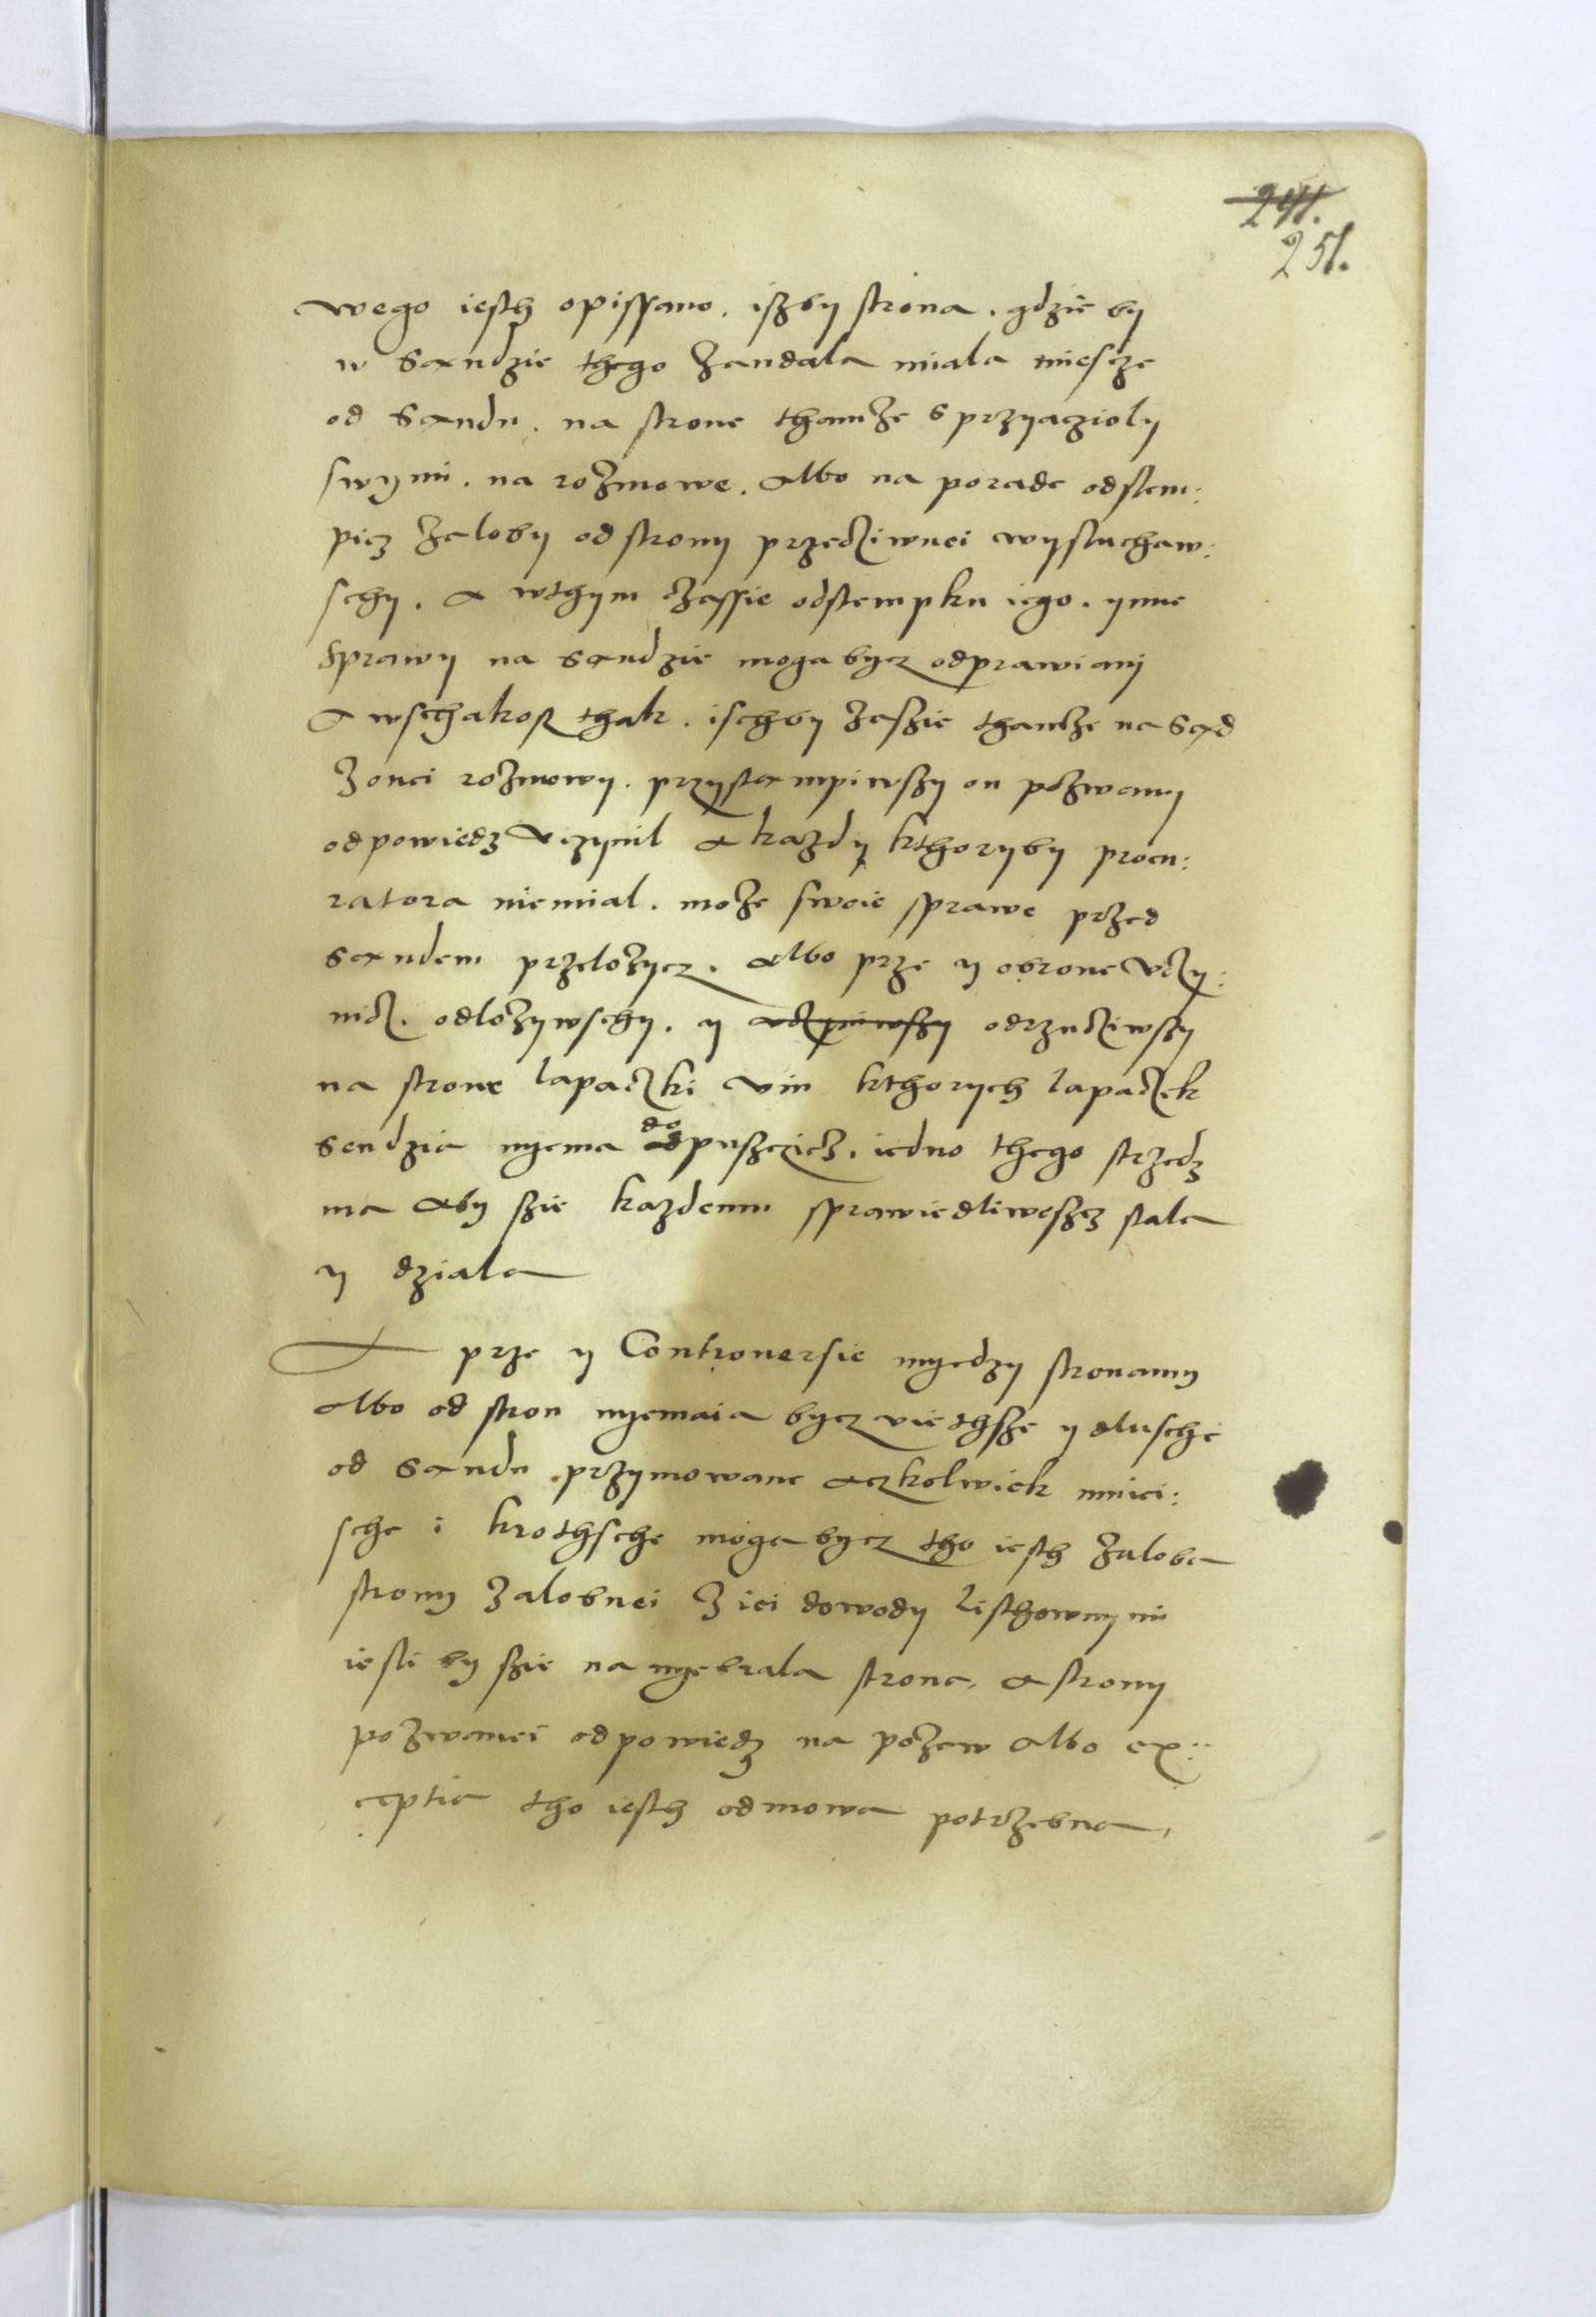 241.
251.
wego iesth opissano. iszby strona. gdzie by
w sandzie thego zandala miala miescze
od sandu. na strone thamze s przyaczioly
swymi. na rozmowe. albo na porade odstem:
picz zaloby od strony przecziwnei wysluchaw:
schy. a wthym czassie odstempku iego. ynne
sprawy na sandzie moga bycz odprawiany
a wschakosz thak. ischby zaszie thamze na sąd
zonei rozmowy. przystampiwszy on pozwany
odpowiedz vczynil a kazdy kthoryby procu:
ratora niemial. moze swoie sprawe przed
sandem przelozycz. albo prze y obrone vczy:
nicz. odlozywschy. y odrzucziwszy
na strone lapaczki vin kthorych lapaczek
sendzia nyema dopuszczicz. iedno thego strzedz
ma aby szie kazdemu sprawiedliwoszcz stala
y dziala
A prze y Controuersie myedzy stronamy
albo od stron nyemaia bycz viethsze y dlusche
od sandu przymowane aczkolwiek mniei:
sche i krothsche moga bycz tho iesth zaloba
strony zalobnei z iei dowody listhownymi
iesli by szie na nye brala strona, a strony
pozwanei odpowiedz na pozew albo ex:
ceptia tho iesth odmowa potrzebna,